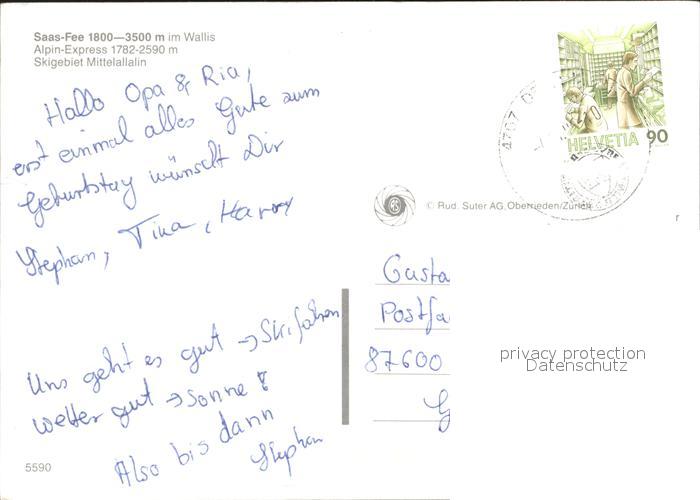 Saas-Fee 1800—3500 m im Wallis
Alpin-Express 1782-2590 m
Skigebiet Mittelallalin
Hallo Opa & Ria,
erst einmal alles Gute zum
Geburtstag wünscht Dir
Stephan, Tina, Harry
Uns geht es gut → Skifahren
wetter gut → Sonne!
Also bis dann
Stephan
5590
HELVETIA 90
© Rud. Suter AG, Oberrieden/Zürich
Gusta
Postfa
87600
G
privacy protection
Datenschutz